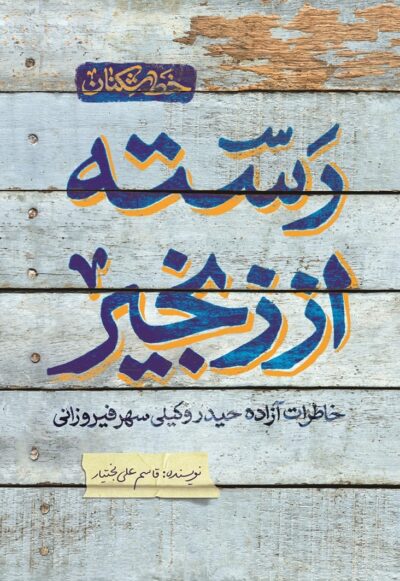 خط‌شکنان
رَستّه
از زنجیر
خاطرات آزاده حیدر وکیلی سهرفیروزانی
نویسنده: قاسم علی بختیار